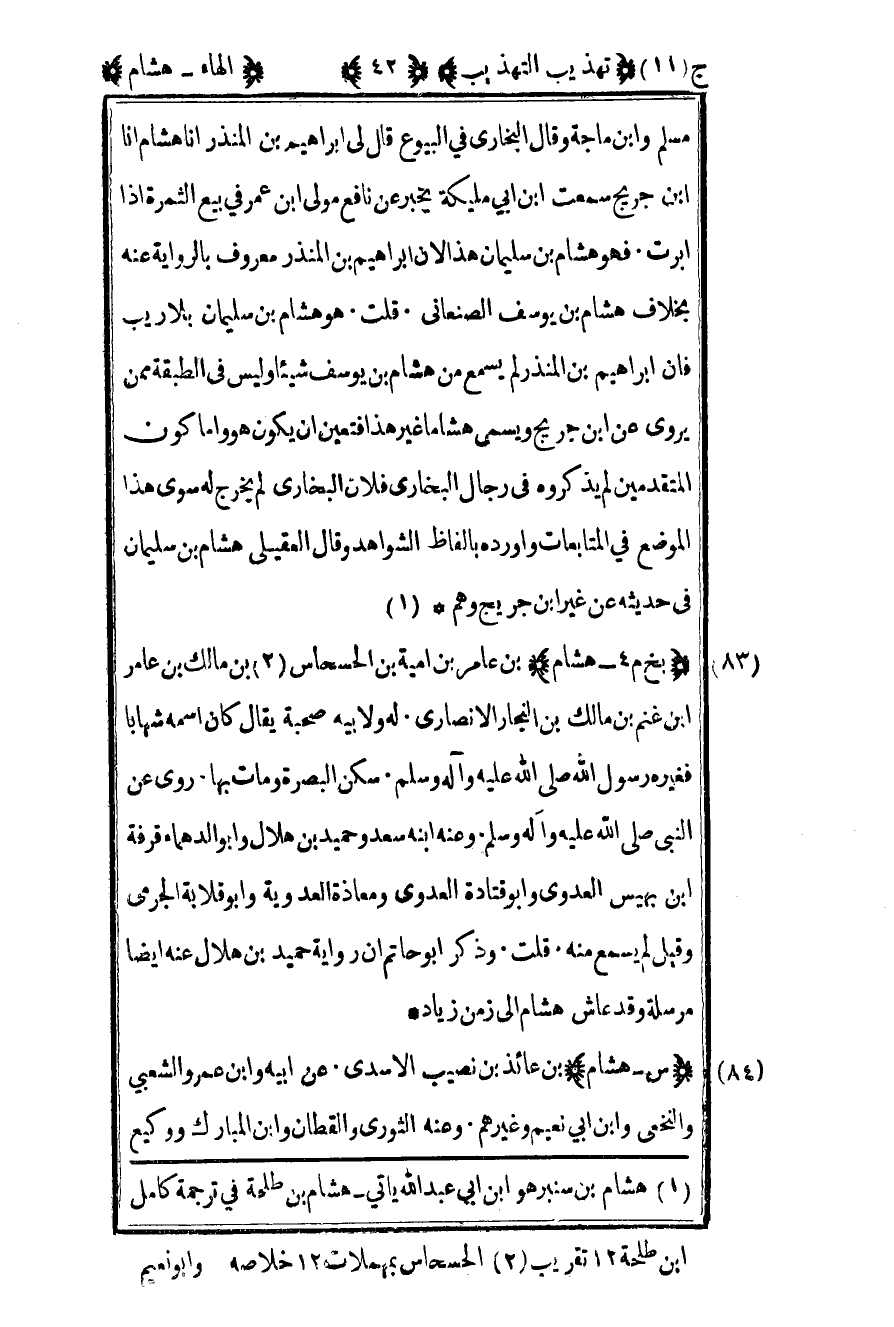 ج(١١) ﴿تهذيب التهذيب﴾ ﴿٤٢﴾ ﴿الهاء ـ هشام﴾
مسلم وابن ماجة وقال البخارى في البيوع قال لى ابراهيم بن المنذر انا هشام انا
ابن جريج سمعت ابن ابي مليكة يخبر عن نافع مولى ابن عمر في بيع الثمرة اذا
ابرت ٠ فهو هشام بن سليمان هذا لان ابراهيم بن المنذر معروف بالرواية عنه
بخلاف هشام بن يوسف الصنعانى ٠ قلت ٠ هو هشام بن سليمان بلا ريب
فان ابراهيم بن المنذر لم يسمع من هشام بن يوسف شيئا وليس فى الطبقة ممن
يروى عن ابن جريج ويسمى هشاما غير هذا فتعين ان يكون هو واما كون
المتقدمين لم يذكروه فى رجال البخارى فلان البخارى لم يخرج له سوى هذا
الموضع في المتابعات واورده بالفاظ الشواهد وقال العقيلى هشام بن سليمان
فى حديثه عن غير ابن جريج وهم * (١)
(٨٣) ﴿بخ م ٤ ـ هشام﴾ بن عامر بن امية بن الحسحاس (٢) بن مالك بن عامر
ابن غنم بن مالك بن النجار الانصارى ٠ له ولابيه صحبة يقال كان اسمه شهابا
فغيره رسول الله صلى الله عليه وآله وسلم ٠ سكن البصرة ومات بها ٠ روى عن
النبى صلى الله عليه وآله وسلم ٠ وعنه ابنه سعد وحميد بن هلال وابو الدهماء قرفة
ابن بهيس العدوى وابو قتادة العدوى ومعاذة العدوية وابو قلابة الجرمى
وقيل لم يسمع منه ٠ قلت ٠ وذكر ابو حاتم ان رواية حميد بن هلال عنه ايضا
مرسلة وقد عاش هشام الى زمن زياد *
(٨٤) ﴿س ـ هشام﴾ بن عائذ بن نصيب الاسدى ٠ عن ابيه وابن عمرو الشعبي
والنخعى وابن ابي نعيم وغيرهم ٠ وعنه الثورى والقطان وابن المبارك ووكيع
(١) هشام بن سنبر هو ابن ابي عبد الله ياتي ـ هشام بن طلحة في ترجمة كامل
ابن طلحة ١٢ تقريب (٢) الحسحاس بمهملات ١٢ خلاصه وابو نعيم